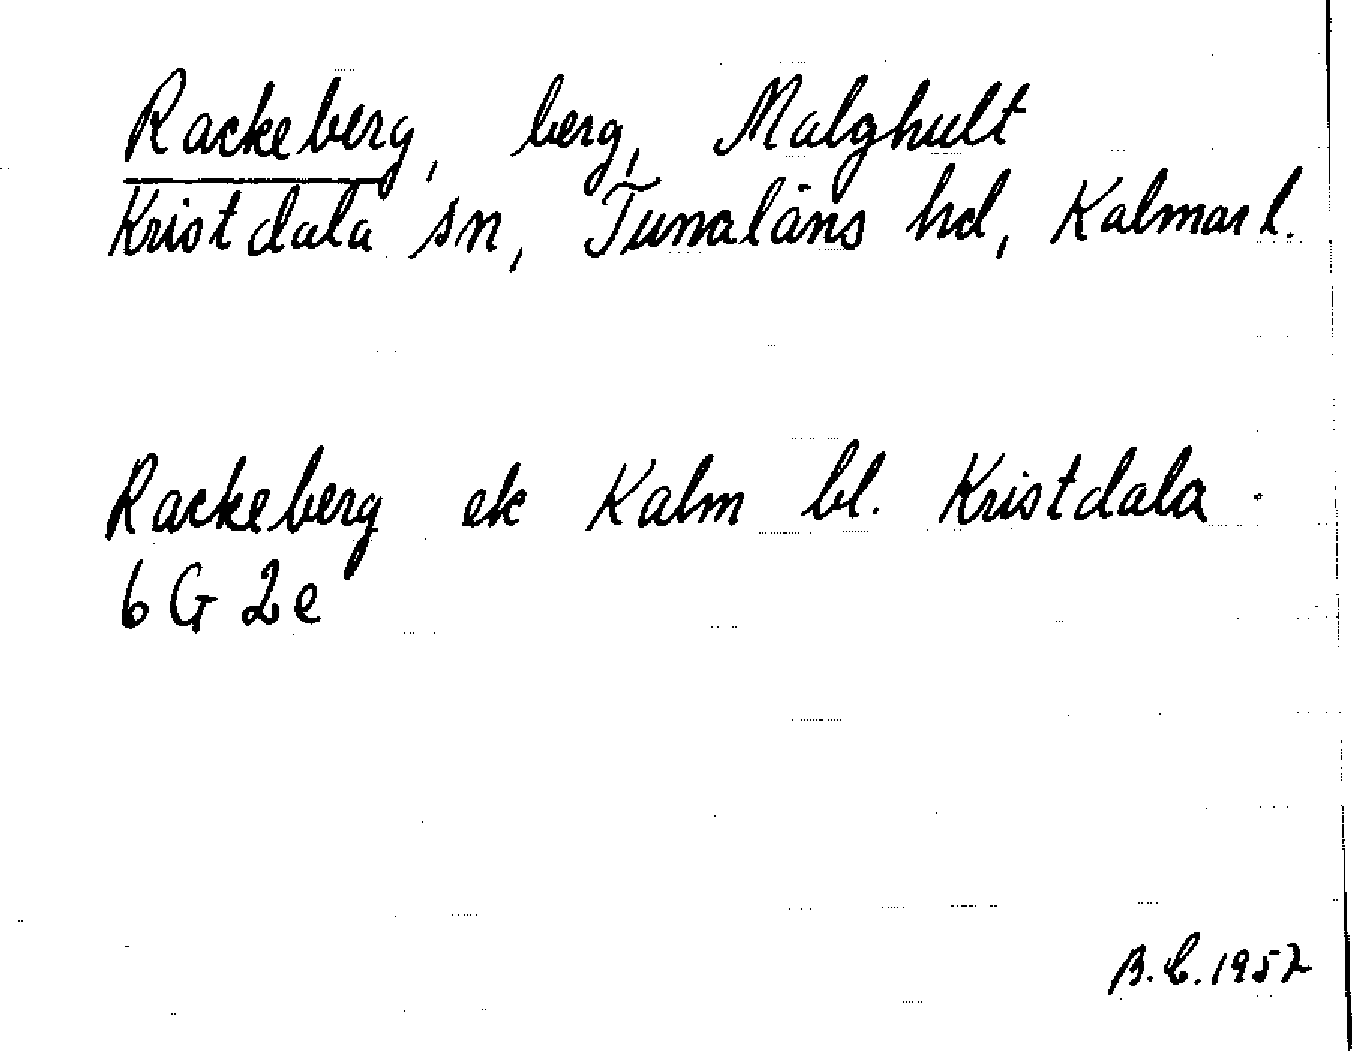 Rackeberg, berg, Malghult
Kristdala sn, Tunaläns hd, Kalmar l.
Rackeberg ek Kalm bl. Kristdala
6 G 2e
B.C. 1957